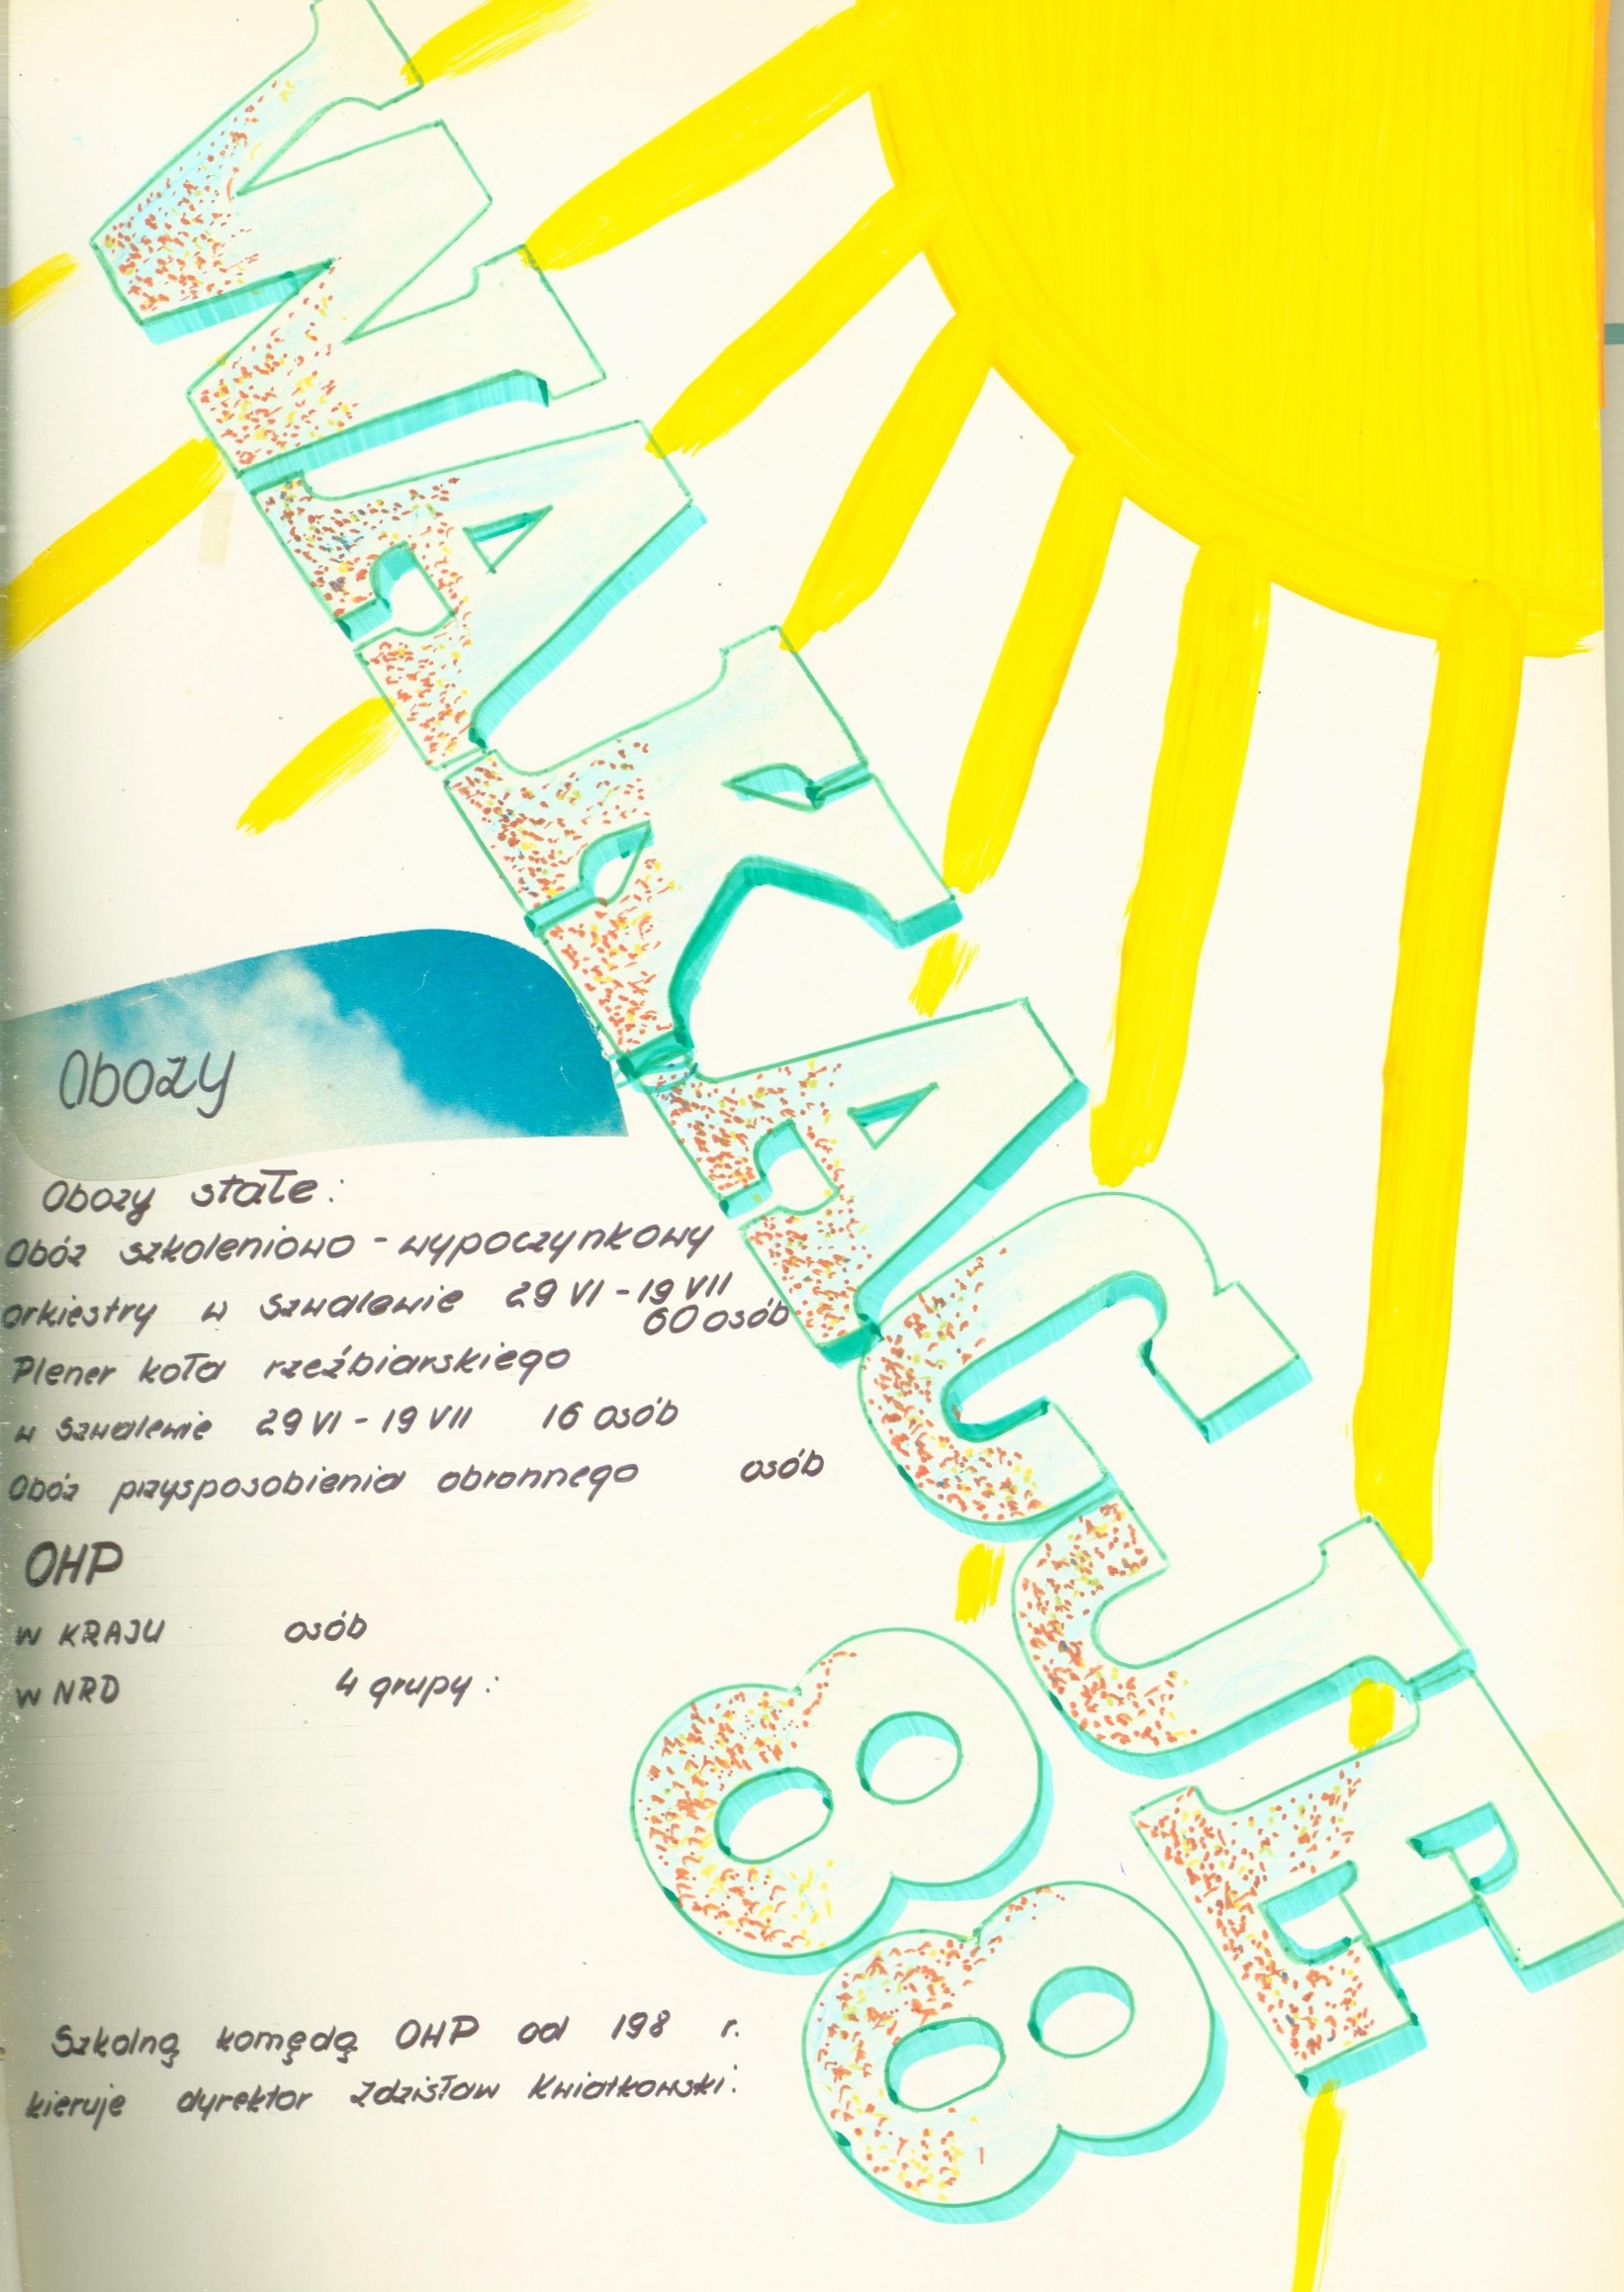 WAKACJE
88
Obozy
Obozy stałe:
Obóz szkoleniowo - wypoczynkowy
orkiestry w Szwalewie 29 VI - 19 VII
60 osób
Plener koła rzeźbiarskiego
w Szwalewie 29 VI - 19 VII 16 osób
Obóz przysposobienia obronnego osób
OHP
W KRAJU osób
W NRD 4 grupy:
Szkolną komędą OHP od 198 r.
kieruje dyrektor Zdzisław Kwiatkowski.